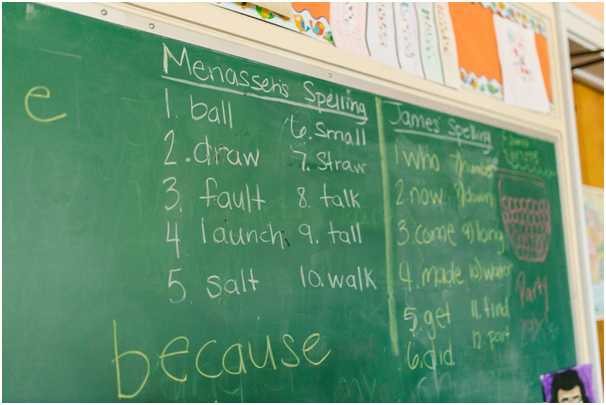 e
Menasseh's Spelling
1. ball
2. draw
3. fault
4 launch
5. salt
6. Small
7. Straw
8. talk
9. tall
10. walk
because
James' Spelling
1 who
2. now
3. come
4. made
5. get
6. did
7) number
9) long
10) water
11. find
12. part
Party